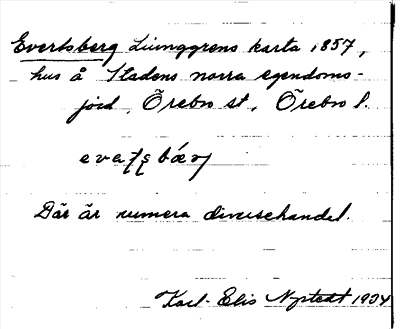 Evertsberg Ljunggrens karta 1857,
hus å Stadens norra egendoms-
jord, Örebro st, Örebro l.
Där är numera diversehandel.
Karl-Elis Nystedt 1934